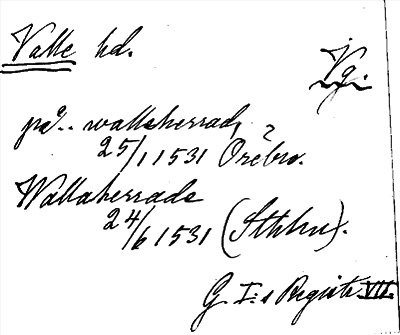 Valle hd.
Vg.
på.. wallsherrad,
25/1 1531 Örebro.
Wallaherrade
24/6 1531 (Sthlm).
G. I:s Registr. VII.